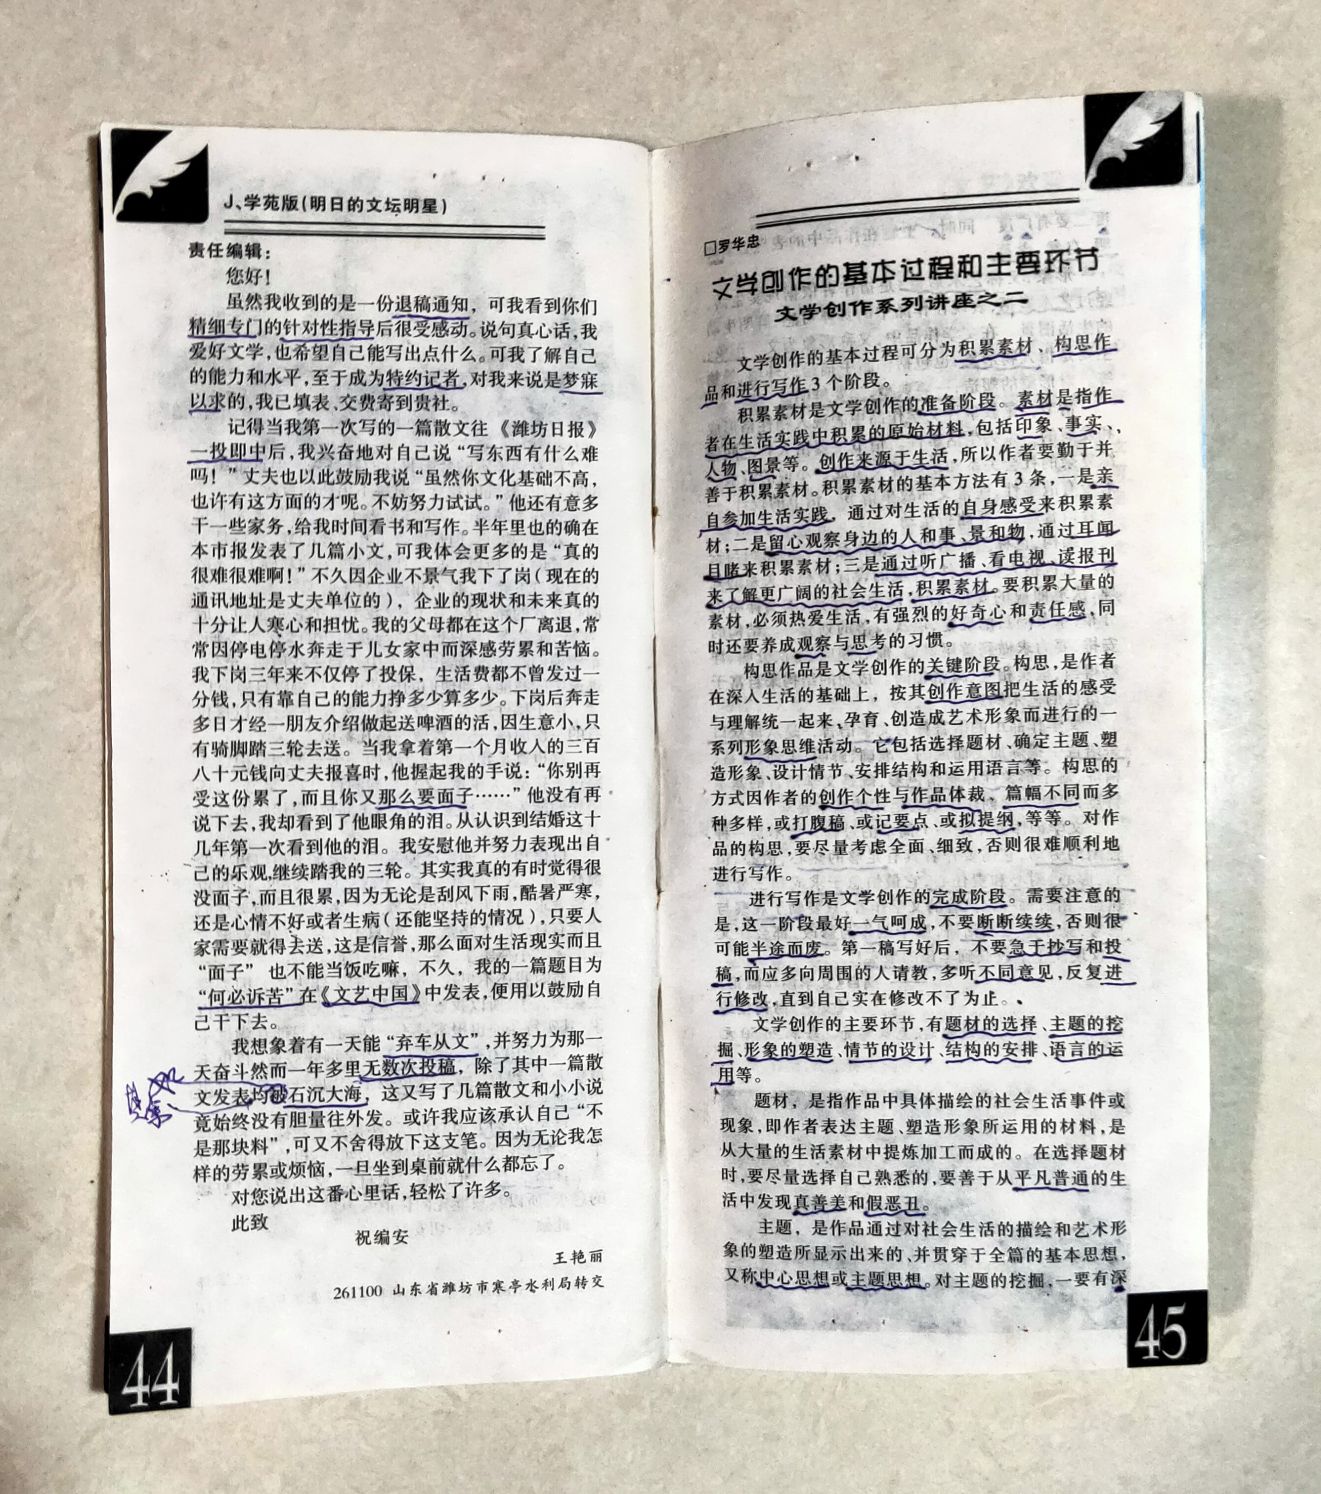 J、学苑版(明日的文坛明星)
责任编辑:
您好!
虽然我收到的是一份退稿通知，可我看到你们
精细专门的针对性指导后很受感动。说句真心话,我
爱好文学,也希望自己能写出点什么。可我了解自己
的能力和水平,至于成为特约记者,对我来说是梦寐
以求的,我已填表、交费寄到贵社。
记得当我第一次写的一篇散文往《潍坊日报》
一投即中后,我兴奋地对自己说“写东西有什么难
吗!”丈夫也以此鼓励我说“虽然你文化基础不高,
也许有这方面的才呢。不妨努力试试。”他还有意多
干一些家务,给我时间看书和写作。半年里也的确在
本市报发表了几篇小文,可我体会更多的是“真的
很难很难啊!”不久因企业不景气我下了岗(现在的
通讯地址是丈夫单位的)，企业的现状和未来真的
十分让人寒心和担忧。我的父母都在这个厂离退,常
常因停电停水奔走于儿女家中而深感劳累和苦恼。
我下岗三年来不仅停了投保，生活费都不曾发过一
分钱,只有靠自己的能力挣多少算多少。下岗后奔走
多日才经一朋友介绍做起送啤酒的活,因生意小,只
有骑脚踏三轮去送。当我拿着第一个月收入的三百
八十元钱向丈夫报喜时,他握起我的手说:“你别再
受这份累了,而且你又那么要面子……”他没有再
说下去,我却看到了他眼角的泪。从认识到结婚这十
几年第一次看到他的泪。我安慰他并努力表现出自
己的乐观,继续踏我的三轮。其实我真的有时觉得很
没面子,而且很累,因为无论是刮风下雨,酷暑严寒,
还是心情不好或者生病(还能坚持的情况),只要人
家需要就得去送,这是信誉,那么面对生活现实而且
“面子”也不能当饭吃嘛，不久，我的一篇题目为
“何必诉苦”在《文艺中国》中发表,便用以鼓励自
己干下去。
我想象着有一天能“弃车从文”,并努力为那一
天奋斗然而一年多里无数次投稿，除了其中一篇散
文发表均被石沉大海，这又写了几篇散文和小小说
竟始终没有胆量往外发。或许我应该承认自己“不
是那块料”,可又不舍得放下这支笔。因为无论我怎
样的劳累或烦恼,一旦坐到桌前就什么都忘了。
对您说出这番心里话,轻松了许多。
此致
祝编安
王艳丽
261100 山东省潍坊市寒亭水利局转交
44
□罗华忠
文学创作的基本过程和主要环节
文学创作系列讲座之二
文学创作的基本过程可分为积累素材、构思作
品和进行写作3个阶段。
积累素材是文学创作的准备阶段。素材是指作
者在生活实践中积累的原始材料,包括印象、事实、
人物、图景等。创作来源于生活,所以作者要勤于并
善于积累素材。积累素材的基本方法有3条,一是亲
自参加生活实践，通过对生活的自身感受来积累素
材;二是留心观察身边的人和事、景和物,通过耳闻
目睹来积累素材;三是通过听广播、看电视、读报刊
来了解更广阔的社会生活,积累素材。要积累大量的
素材,必须热爱生活,有强烈的好奇心和责任感,同
时还要养成观察与思考的习惯。
构思作品是文学创作的关键阶段。构思,是作者
在深入生活的基础上，按其创作意图把生活的感受
与理解统一起来、孕育、创造成艺术形象而进行的一
系列形象思维活动。它包括选择题材、确定主题、塑
造形象、设计情节、安排结构和运用语言等。构思的
方式因作者的创作个性与作品体裁、篇幅不同而多
种多样,或打腹稿、或记要点、或拟提纲,等等。对作
品的构思,要尽量考虑全面、细致,否则很难顺利地
进行写作。
进行写作是文学创作的完成阶段。需要注意的
是,这一阶段最好一气呵成,不要断断续续,否则很
可能半途而废。第一稿写好后，不要急于抄写和投
稿,而应多向周围的人请教,多听不同意见,反复进
行修改,直到自己实在修改不了为止。
文学创作的主要环节,有题材的选择、主题的挖
掘、形象的塑造、情节的设计、结构的安排、语言的运
用等。
题材，是指作品中具体描绘的社会生活事件或
现象,即作者表达主题、塑造形象所运用的材料,是
从大量的生活素材中提炼加工而成的。在选择题材
时,要尽量选择自己熟悉的,要善于从平凡普通的生
活中发现真善美和假恶丑。
主题，是作品通过对社会生活的描绘和艺术形
象的塑造所显示出来的、并贯穿于全篇的基本思想,
又称中心思想或主题思想。对主题的挖掘,一要有深
45